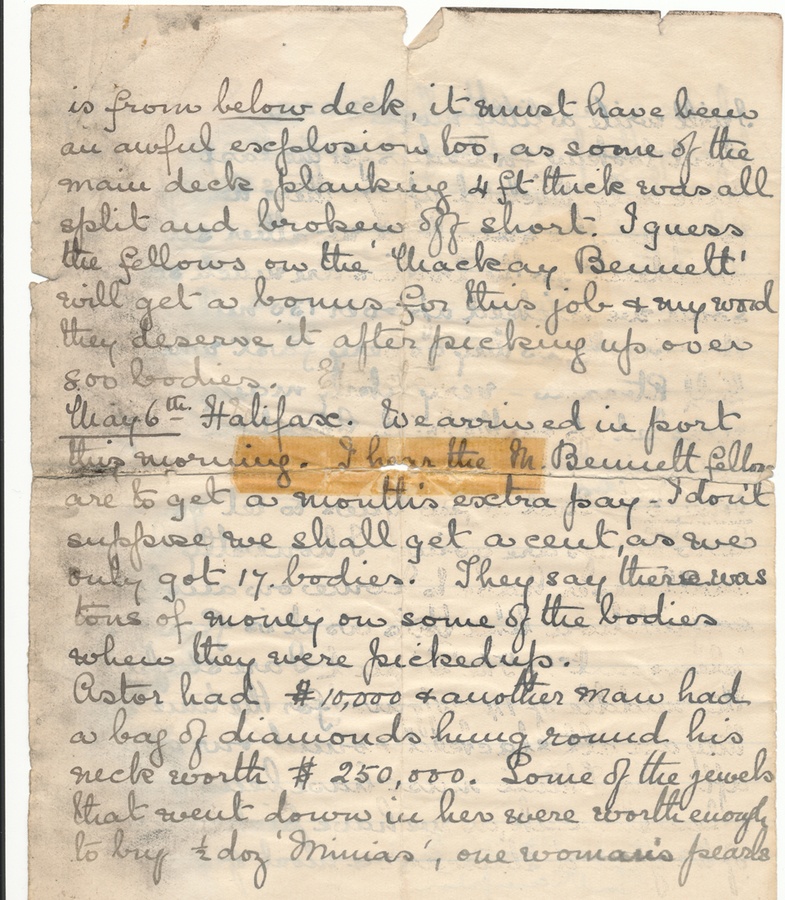 is from below deck, it must have been
an awful explosion too, as some of the
main deck planking 4 ft thick was all
split and broken off short. I guess
the fellows on the 'Mackay Bennett'
will get a bonus for this job & my word
they deserve it after picking up over
300 bodies.
May 6th. Halifax. We arrived in port
this morning. I hear the M. Bennett fellows
are to get a month's extra pay - I don't
suppose we shall get a cent, as we
only got 17. bodies. They say there was
tons of money on some of the bodies
when they were picked up.
Astor had $10,000 & another man had
a bag of diamonds hung round his
neck worth $250,000. Some of the jewels
that went down in her were worth enough
to buy ½ doz 'Minias', one woman's pearls